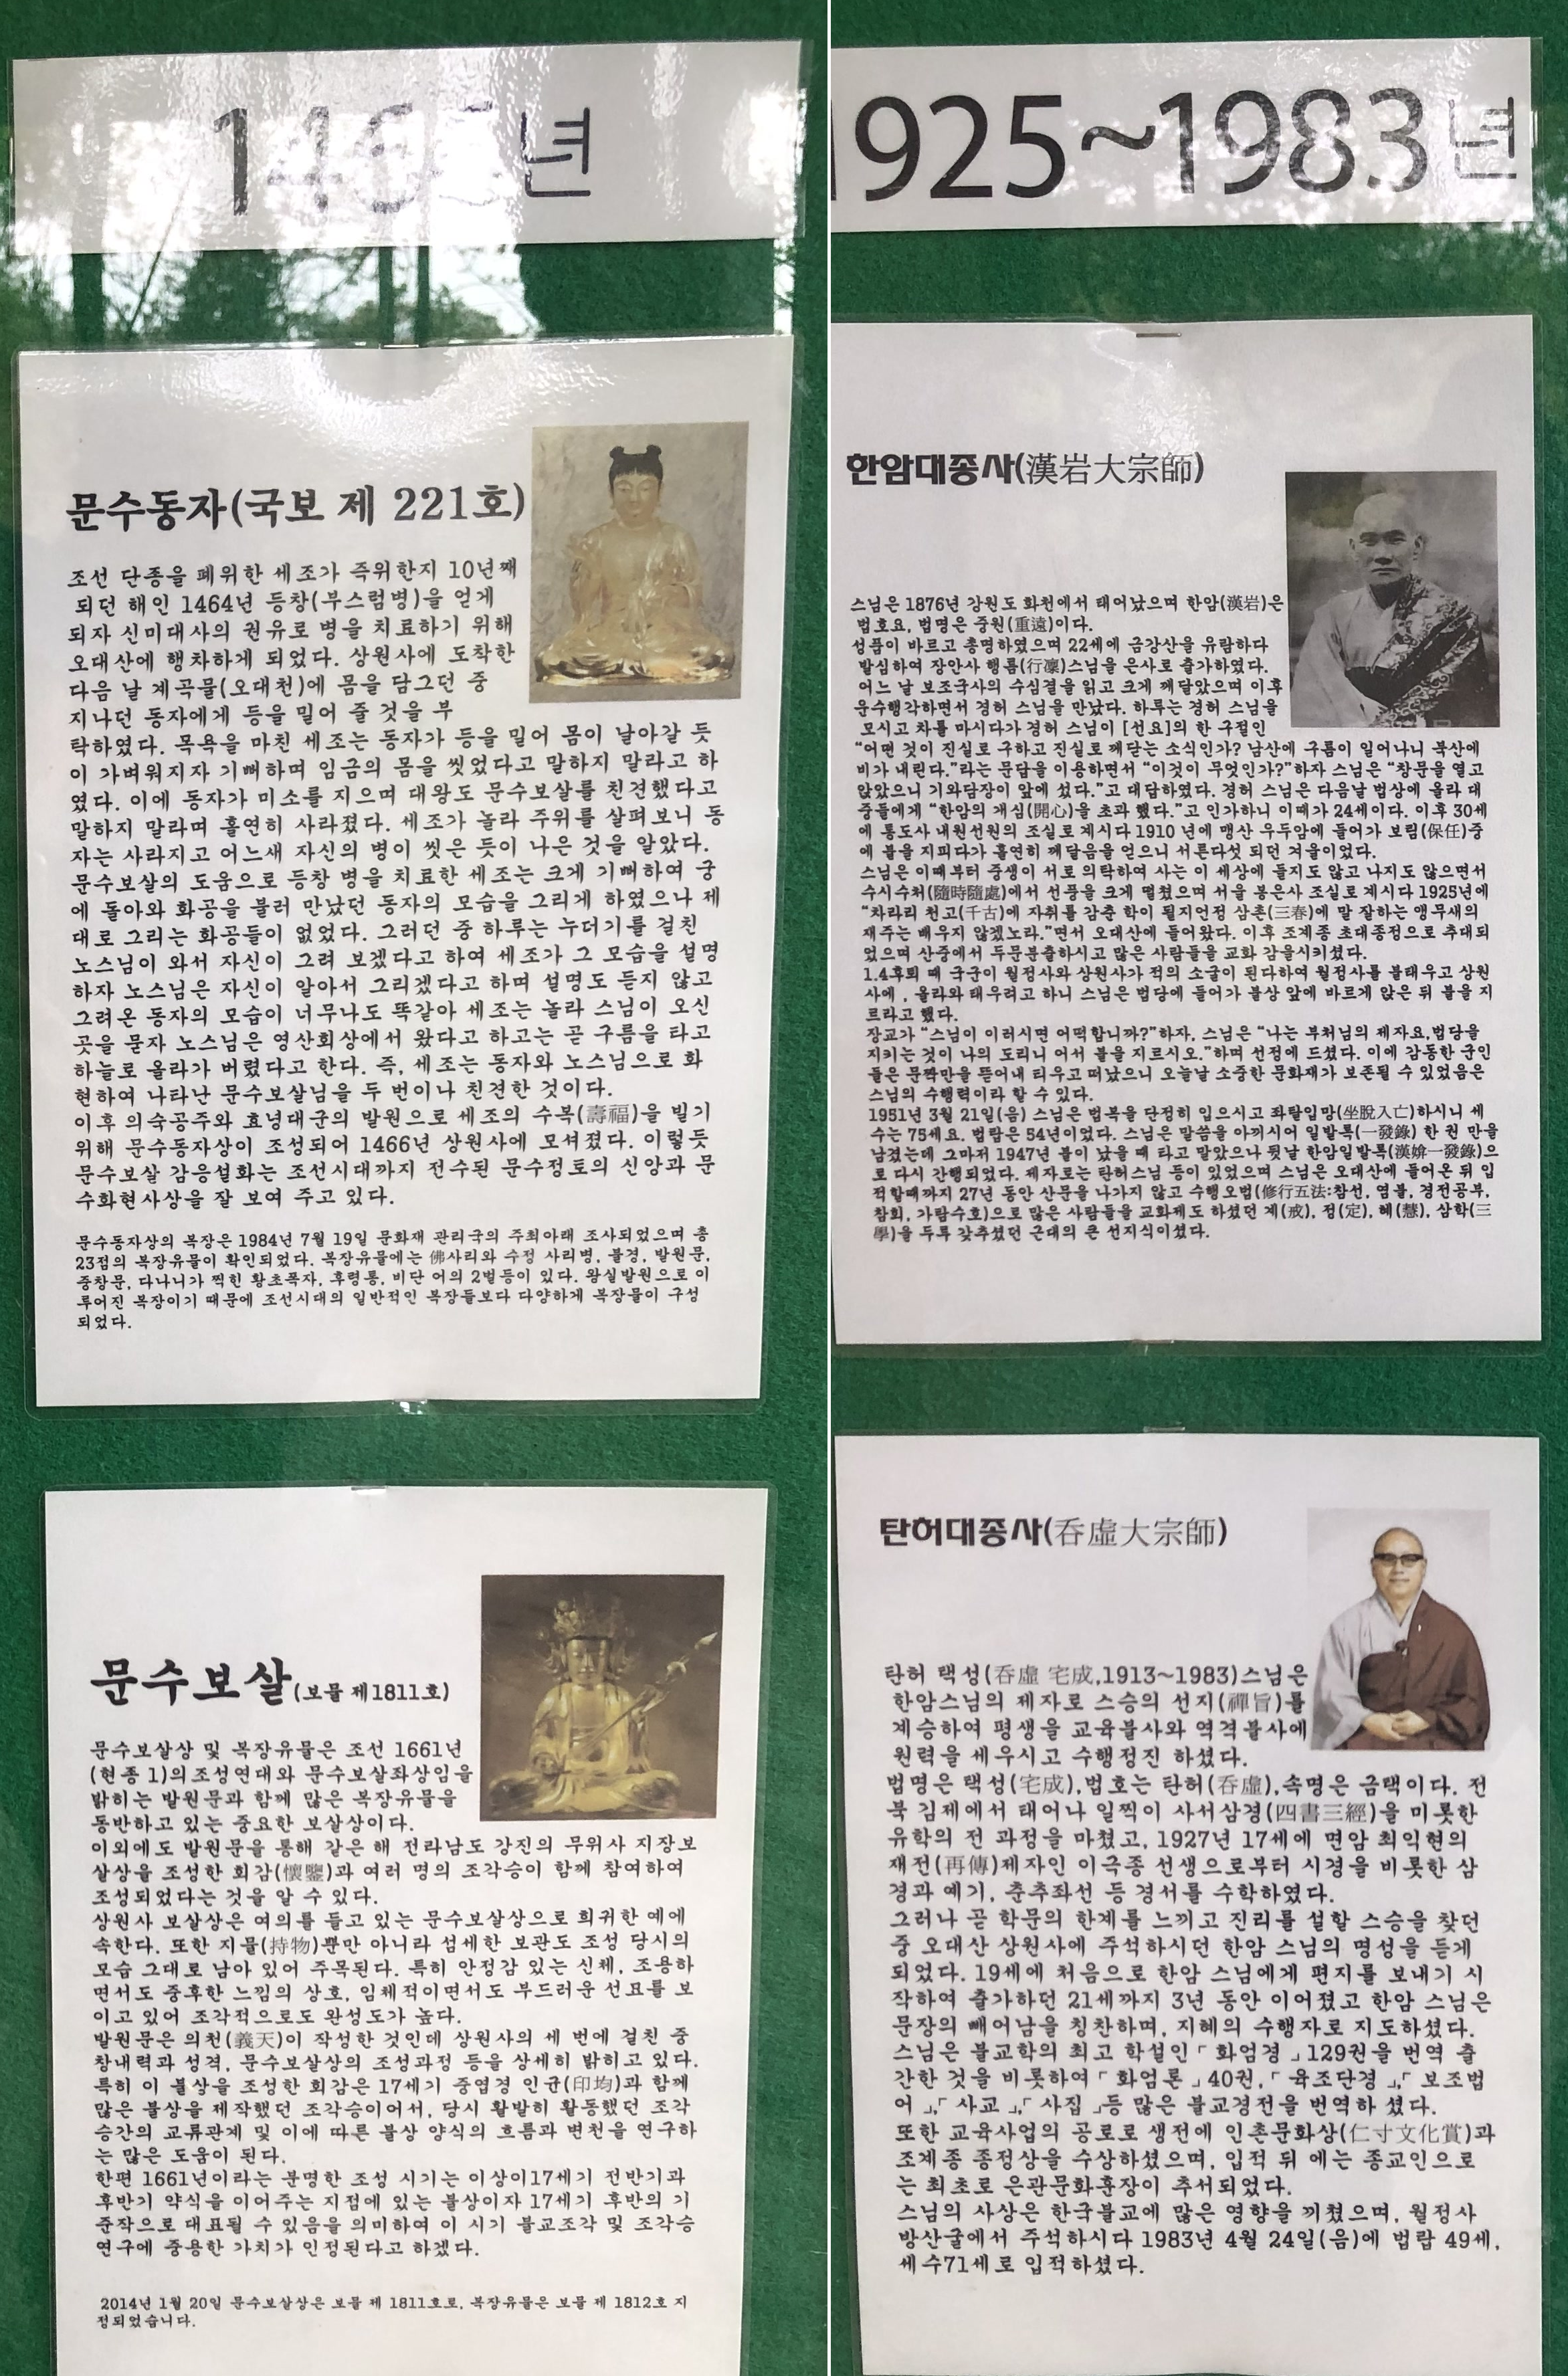 년
문수동자(국보 제 221호)
조선 단종을 폐위한 세조가 즉위한지 10년째
되던 해인 1464년 등창(부스럼병)을 얻게
되자 신미대사의 권유로 병을 치료하기 위해
오대산에 행차하게 되었다. 상원사에 도착한
다음 날 계곡물(오대천)에 몸을 담그던 중
지나던 동자에게 등을 밀어 줄 것을 부
탁하였다. 목욕을 마친 세조는 동자가 등을 밀어 몸이 날아갈 듯
이 가벼워지자 기뻐하며 임금의 몸을 씻었다고 말하지 말라고 하
였다. 이에 동자가 미소를 지으며 대왕도 문수보살를 친견했다고
말하지 말라며 홀연히 사라졌다. 세조가 놀라 주위를 살펴보니 동
자는 사라지고 어느새 자신의 병이 씻은 듯이 나은 것을 알았다.
문수보살의 도움으로 등창 병을 치료한 세조는 크게 기뻐하여 궁
에 돌아와 화공을 불러 만났던 동자의 모습을 그리게 하였으나 제
대로 그리는 화공들이 없었다. 그러던 중 하루는 누더기를 걸친
노스님이 와서 자신이 그려 보겠다고 하여 세조가 그 모습을 설명
하자 노스님은 자신이 알아서 그리겠다고 하며 설명도 듣지 않고
그려온 동자의 모습이 너무나도 똑같아 세조는 놀라 스님이 오신
곳을 묻자 노스님은 영산회상에서 왔다고 하고는 곧 구름을 타고
하늘로 올라가 버렸다고 한다. 즉, 세조는 동자와 노스님으로 화
현하여 나타난 문수보살님을 두 번이나 친견한 것이다.
이후 의숙공주와 효녕대군의 발원으로 세조의 수복(壽福)을 빌기
위해 문수동자상이 조성되어 1466년 상원사에 모셔졌다. 이렇듯
문수보살 감응설화는 조선시대까지 전수된 문수정토의 신앙과 문
수화현사상을 잘 보여 주고 있다.
문수동자상의 복장은 1984년 7월 19일 문화재 관리국의 주최아래 조사되었으며 총
23점의 복장유물이 확인되었다. 복장유물에는 佛사리와 수정 사리병, 불경, 발원문,
중창문, 다나니가 찍힌 황초폭자, 후령통, 비단 어의 2벌등이 있다. 왕실발원으로 이
루어진 복장이기 때문에 조선시대의 일반적인 복장들보다 다양하게 복장물이 구성
되었다.
문수보살(보물 제1811호)
문수보살상 및 복장유물은 조선 1661년
(현종 1)의조성연대와 문수보살좌상임을
밝히는 발원문과 함께 많은 복장유물을
동반하고 있는 중요한 보살상이다.
이외에도 발원문을 통해 같은 해 전라남도 강진의 무위사 지장보
살상을 조성한 회감(懷鑒)과 여러 명의 조각승이 함께 참여하여
조성되었다는 것을 알 수 있다.
상원사 보살상은 여의를 들고 있는 문수보살상으로 희귀한 예에
속한다. 또한 지물(持物)뿐만 아니라 섬세한 보관도 조성 당시의
모습 그대로 남아 있어 주목된다. 특히 안정감 있는 신체, 조용하
면서도 중후한 느낌의 상호, 입체적이면서도 부드러운 선묘를 보
이고 있어 조각적으로도 완성도가 높다.
발원문은 의천(義天)이 작성한 것인데 상원사의 세 번에 걸친 중
창내력과 성격, 문수보살상의 조성과정 등을 상세히 밝히고 있다.
특히 이 불상을 조성한 회감은 17세기 중엽경 인균(印均)과 함께
많은 불상을 제작했던 조각승이어서, 당시 활발히 활동했던 조각
승간의 교류관계 및 이에 따른 불상 양식의 흐름과 변천을 연구하
는 많은 도움이 된다.
한편 1661년이라는 분명한 조성 시기는 이상이17세기 전반기과
후반기 약식을 이어주는 지점에 있는 불상이자 17세기 후반의 기
준작으로 대표될 수 있음을 의미하여 이 시기 불교조각 및 조각승
연구에 중용한 가치가 인정된다고 하겠다.
2014년 1월 20일 문수보살상은 보물 제 1811호로, 복장유물은 보물 제 1812호 지
정되었습니다.
1925~1983년
한암대종사(漢岩大宗師)
스님은 1876년 강원도 화천에서 태어났으며 한암(漢岩)은
법호요, 법명은 중원(重遠)이다.
성품이 바르고 총명하였으며 22세에 금강산을 유람하다
발심하여 장안사 행름(行凜)스님을 은사로 출가하였다.
어느 날 보조국사의 수심결을 읽고 크게 깨달았으며 이후
운수행각하면서 경허 스님을 만났다. 하루는 경허 스님을
모시고 차를 마시다가 경허 스님이 [선요]의 한 구절인
“어떤 것이 진실로 구하고 진실로 깨닫는 소식인가? 남산에 구름이 일어나니 북산에
비가 내린다.”라는 문답을 이용하면서 “이것이 무엇인가?”하자 스님은 “창문을 열고
앉았으니 기와담장이 앞에 섰다.”고 대답하였다. 경허 스님은 다음날 법상에 올라 대
중들에게 “한암의 개심(開心)을 초과 했다.”고 인가하니 이때가 24세이다. 이후 30세
에 통도사 내원선원의 조실로 계시다 1910 년에 맹산 우두암에 들어가 보림(保任)중
에 불을 지피다가 홀연히 깨달음을 얻으니 서른다섯 되던 겨울이었다.
스님은 이때부터 중생이 서로 의탁하여 사는 이 세상에 들지도 않고 나지도 않으면서
수시수처(隨時隨處)에서 선풍을 크게 떨쳤으며 서울 봉은사 조실로 계시다 1925년에
“차라리 천고(千古)에 자취를 감춘 학이 될지언정 삼촌(三春)에 말 잘하는 앵무새의
재주는 배우지 않겠노라.”면서 오대산에 들어왔다. 이후 조계종 초대종정으로 추대되
었으며 산중에서 두문분출하시고 많은 사람들을 교화 감을시키셨다.
1.4후퇴 때 국군이 월정사와 상원사가 적의 소굴이 된다하여 월정사를 불태우고 상원
사에 , 올라와 태우려고 하니 스님은 법당에 들어가 불상 앞에 바르게 앉은 뒤 불을 지
르라고 했다.
장교가 “스님이 이러시면 어떡합니까?”하자, 스님은 “나는 부처님의 제자요,법당을
지키는 것이 나의 도리니 어서 불을 지르시오.”하며 선정에 드셨다. 이에 감동한 군인
들은 문짝만을 뜯어내 티우고 떠났으니 오늘날 소중한 문화재가 보존될 수 있었음은
스님의 수행력이라 할 수 있다.
1951년 3월 21일(음) 스님은 법복을 단정히 입으시고 좌탈입망(坐脫入亡)하시니 세
수는 75세요. 법랍은 54년이었다. 스님은 말씀을 아끼시어 일발록(一發錄) 한 권 만을
남겼는데 그마저 1947년 불이 났을 때 타고 말았으나 뒷날 한암일발록(漢媕一發錄)으
로 다시 간행되었다. 제자로는 탄허스님 등이 있었으며 스님은 오대산에 들어온 뒤 입
적할때까지 27년 동안 산문을 나가지 않고 수행오법(修行五法:참선, 염불, 경전공부,
참회, 가람수호)으로 많은 사람들을 교화제도 하셨던 계(戒), 정(定), 혜(慧), 삼학(三
學)을 두루 갖추셨던 근대의 큰 선지식이셨다.
탄허대종사(呑虛大宗師)
탄허 택성(呑虛 宅成,1913~1983)스님은
한암스님의 제자로 스승의 선지(禪旨)를
계승하여 평생을 교육불사와 역격불사에
원력을 세우시고 수행정진 하셨다.
법명은 택성(宅成),법호는 탄허(呑虛),속명은 금택이다. 전
북 김제에서 태어나 일찍이 사서삼경(四書三經)을 미롯한
유학의 전 과정을 마쳤고, 1927년 17세에 면암 최익현의
재전(再傳)제자인 이극종 선생으로부터 시경을 비롯한 삼
경과 예기, 춘추좌선 등 경서를 수학하였다.
그러나 곧 학문의 한계를 느끼고 진리를 설할 스승을 찾던
중 오대산 상원사에 주석하시던 한암 스님의 명성을 듣게
되었다. 19세에 처음으로 한암 스님에게 편지를 보내기 시
작하여 출가하던 21세까지 3년 동안 이어졌고 한암 스님은
문장의 빼어남을 칭찬하며, 지혜의 수행자로 지도하셨다.
스님은 불교학의 최고 학설인「 화엄경 」129권을 번역 출
간한 것을 비롯하여「 화엄론 」40권,「 육조단경 」,「 보조법
어 」,「 사교 」,「 사집 」등 많은 불교경전을 번역하 셨다.
또한 교육사업의 공로로 생전에 인촌문화상(仁寸文化賞)과
조계종 종정상을 수상하셨으며, 입적 뒤 에는 종교인으로
는 최초로 은관문화훈장이 추서되었다.
스님의 사상은 한국불교에 많은 영향을 끼쳤으며, 월정사
방산굴에서 주석하시다 1983년 4월 24일(음)에 법랍 49세,
세수71세로 입적하셨다.